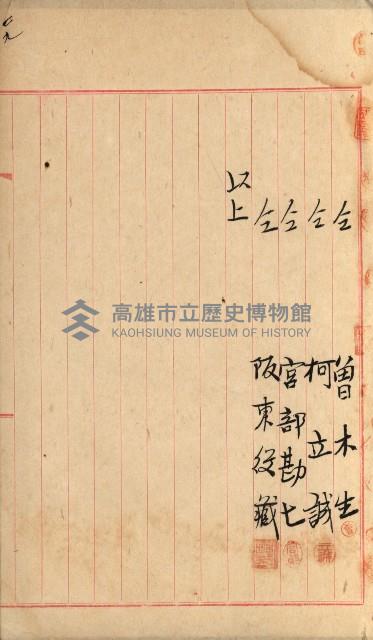 仝 曽木生
仝 柯立誠
仝 宮部勘七
仝 阪東役藏
以上
高雄市立歷史博物館
KAOHSIUNG MUSEUM OF HISTORY